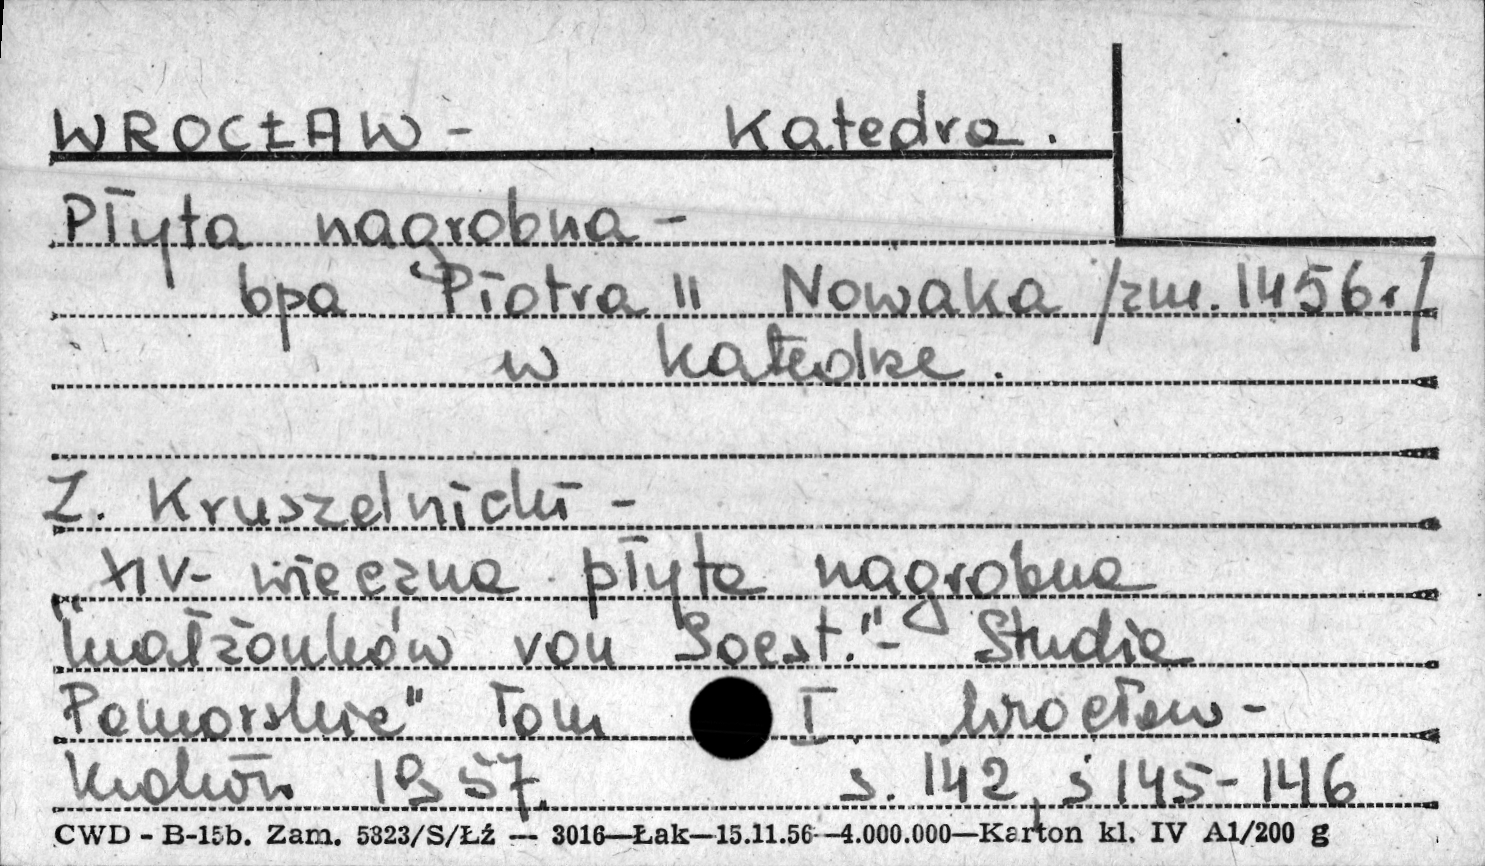 WROCŁAW - Katedra.
Płyta nagrobna -
bpa Piotra II Nowaka /zm. 1456r/
w katedrze.
Z. Kruszelnicki -
XIV- wieczna płyta nagrobna
"małżonków von Soest."- Studia
Pomorskie" Tom I. Wrocław -
Kraków 1957. s. 142, s 145-146
CWD - B-15b. Zam. 5823/S/Łź — 3016—Łak—15.11.56—4.000.000—Karton kl. IV A1/200 g